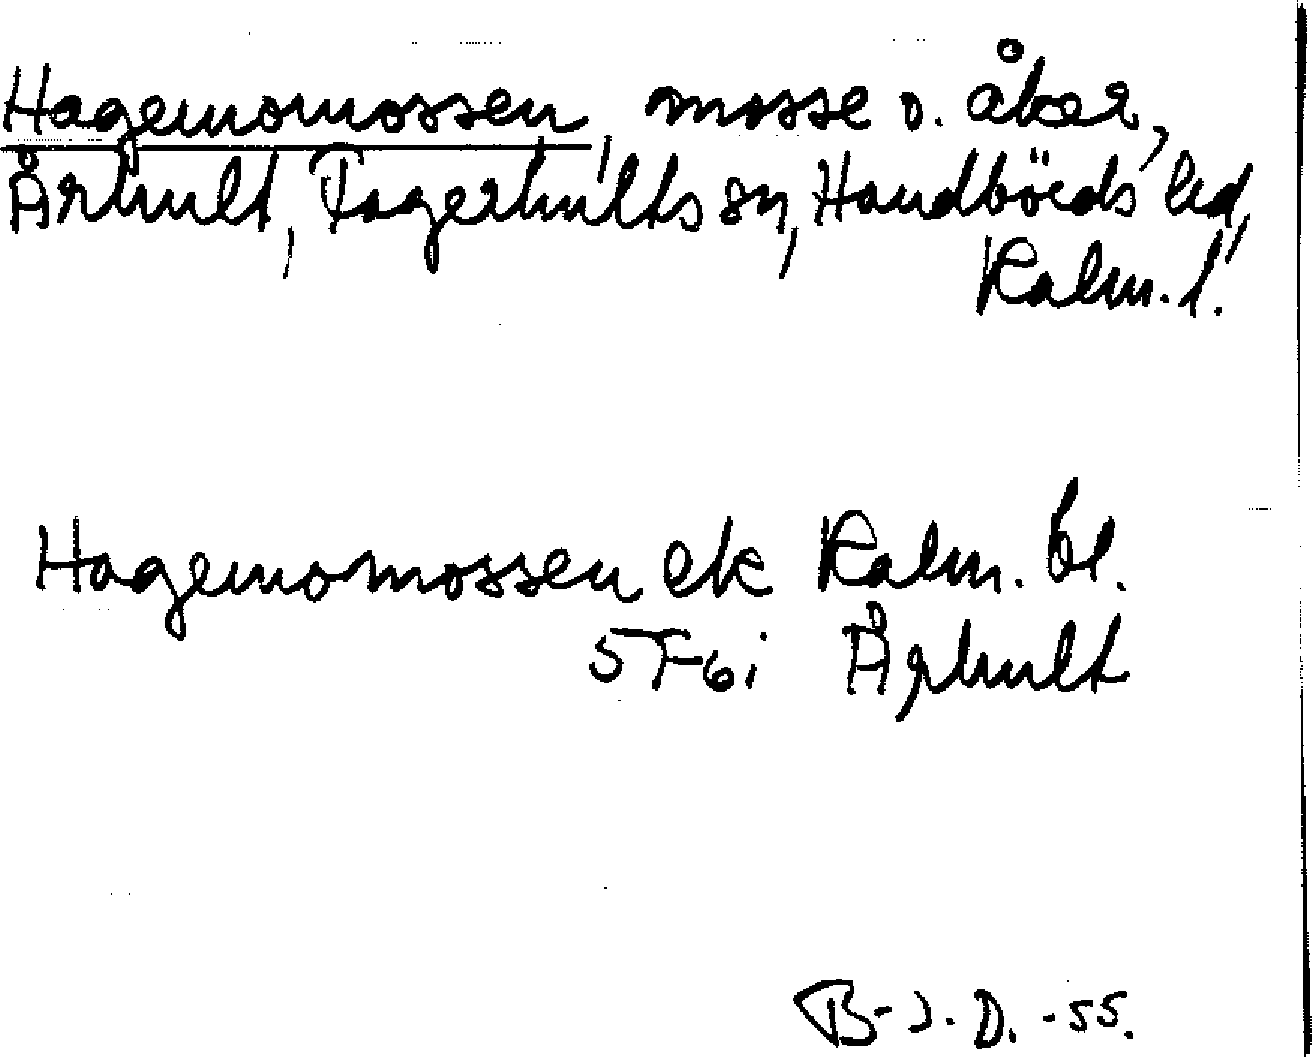 Hagemomossen, mosse o. åker,
Århult, Fagerhults sn, Handbörds hd,
Kalm. l.
Hagemomossen ek Kalm. bl.
5F6i Århult
B-J. D. -55.